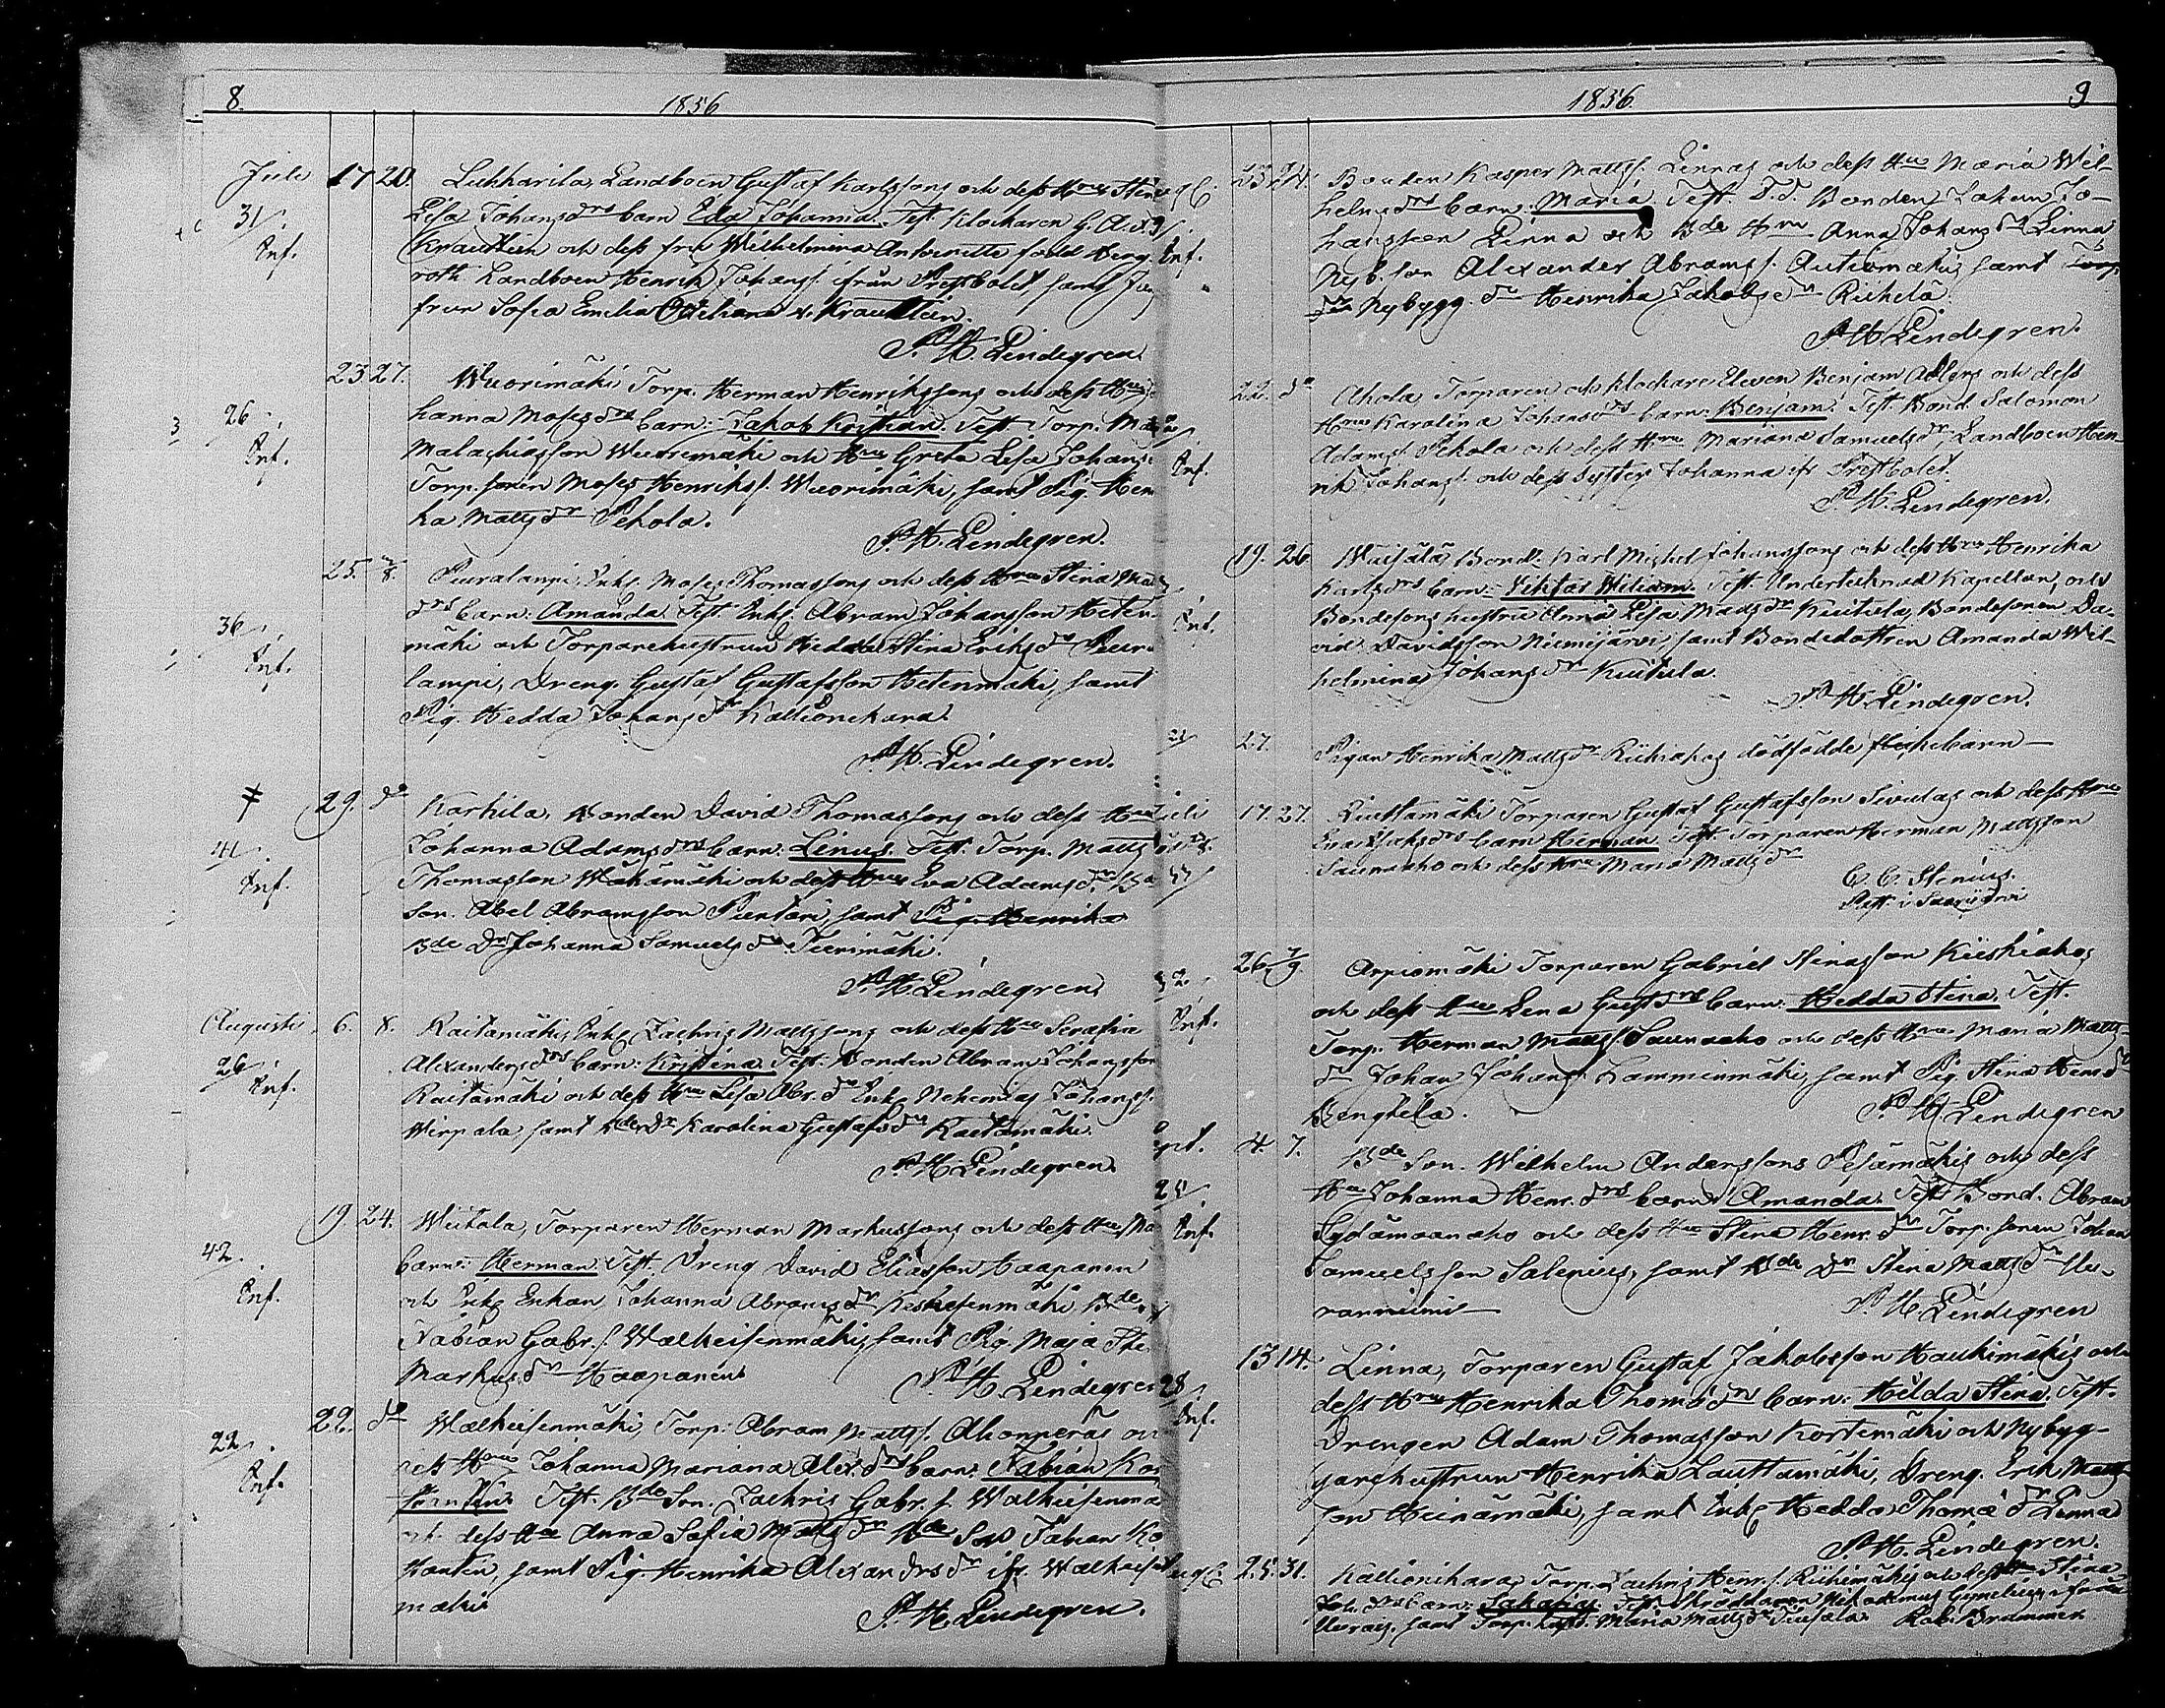 8. 1856
Juli 17 20. Lehharila, Landboen Gustaf Karlssons och dess Hrus Stina
31/. Lisa Johansdrs barn Eda Johanna. Test. Klockaren G. A. v.
Inf. Krautlein och dess fru Wilhelmina Antoinette född Berg-
roth Landboen Henrik Johanss. ifrån Prestbolet samt Jung-
frun Sofia Emilia v. Krautlein.
P. H. Lindegren.
23 27. Wuorimäki Torp. Herman Henrikssons och dess Hrus
26/. hanna Mosesdrs barn: Jakob Kristian. Test. Torp.
Inf. Malachiasson Wuorimäki och Hru Greta Lisa Johans
Torp. sonen Moses Henrikss. Wuorimäki, samt Pig. Hen
ka Mattsdr Pekola.
P. H. Lindegren.
25. 3/8. Peuralampi, Inh. Moses Thomassons och dess Hrus Stina
drs barn: Amanda. Test. Inh. Abram Johansson Heten-
36/. mäki och Torparehustrun Hedda Stina Eriksdr Peura-
Inf. lampi, Dreng. Gustaf Gustafsson Hetenmäki, samt
Pig. Hedda Johansdr Kallionkara.
P. H. Lindegren.
29. do Karhila, Bonden David Thomassons och dess Hrus
41/. Johanna Adamsdrs barn: Linus. Test. Torp. Matts
Inf. Thomasson Wähämäki och dess Hru Eva Adamsdr, Bde
son. Abel Abramsson Pentari, samt Pig. Henrika
Bde Dr Johanna Samuelsdr Tierimäki.
P. H. Lindegren.
Augusti 6. 8. Raitamäki, Inh. Zachris Mattssons och dess Hrus Serafia
26/. Inf. Alexandersdrs barn: Kristina. Test. Bonden Abram Johansson
Raitamäki och dess Hru Lisa Abr.dr Inh. Nehemias Johanss.
Wirpala, samt Bde Dr Karolina Gustafsdr Raitamäki.
P. H. Lindegren.
19. 24. Wiitala, Torparen Herman Markussons och dess Hrus Ma
42/. barn: Herman. Test. Dreng David Eliasson Haapanen
Inf. och Inh. Enkan Johanna Abramsdr Keskisenmäki Bde
Fabian Gabr.s. Walkeisenmäki, samt Pig. Maja Sti
Markusdr Haapanen
P. H. Lindegren
22. do Walkeisenmäki, Torp. Abram Mattss. Ahonperäs och
22/. dess Hrus Johanna Mariana Alex.drs barn: Fabian Kon
Inf. stantin. Test. Bde Son. Zachris Gabr.s. Walkeisenmä
och dess Hru Anna Sofia Mattsdr Bde Son Fabian Ko
stantin, samt Pig Henrika Alexandrsdr ifr. Walkeisen
mäki
P. H. Lindegren.
1856. 9
23. 24. Bonden Kasper Mattss. Linnas och dess Hrus Maria Wil-
helmsdrs barn: Maria. Test. Bonden Johan Jo-
Inf. hansson Linna och Bde Hru Anna Johansdr Linna
Nyb. son Alexander Abramss. Autiomäkis samt Torp
Nybygg. dr Henrika Jakobsdr Riihelä.
P. H. Lindegren.
22. do Ahola, Torparen och Klockare Eleven Benjam Adlers och dess
Hrus Karolina Johansdrs barn: Benjam. Test. Bond. Salomon
Inf. Adamss. Pekola och dess Hru Mariana Samuelsdr, Landboen Hen-
rik Johanss. och dess syster Johanna ifr. Prestbolet.
P. H. Lindegren.
19. 26 Bond. Karl Michel Johanssons och dess Hrus Henrika
Karlsdrs barn: Viktor Wiliam. Test. Undertecknad Kapellan, och
Inf. Bondesons hustru Anna Lisa Mattsdr Kiitula, Bondesonen Da-
vid Davidsson Niemijärvi, samt Bondedottren Amanda Wil-
helmina Johansdr Kiitula.
P. H. Lindegren.
27. Pigan Henrika Mattsdr Riihiahos dödfödde flickebarn —
17. 27. Rustamäki Torparen Gustaf Gustafsson Sivulas och dess Hrus
Eva Isaksdrs barn Herman Test Torparen Herman Mattsson
Saunaaho och dess Hru Maria Mattsdr
C. C. Stenius.
Past. i Saarijärvi
26. 7/9. Arpiomäki Torparen Gabriel Stinasson Kiiskiahos
32/. och dess Hrus Lena Gustsdrs barn: Hedda Stina. Test.
Inf. Torp. Herman Mattss. Saunaaho och dess Hru Maria Matts-
dr Johan Johanss. Lamminmäki, samt Pig. Stina Hemsdr
Bengtila.
P. H. Lindegren
Sept. 4. 7. Bde Son. Wilhelm Anderssons Pesämäkis och dess
Hrus Johanna Henr.drs barn Amanda. Test Bond. Abram
Inf. Sydämaanaho och dess Hru Stina Henr.dr Torp. sonen Johan
Samuelsson Salenius, samt Bde Dr Stina Mattsdr Uu-
ranniemi —
P. H. Lindegren
13 14. Linna, Torparen Gustaf Jakobsson Haukimäkis och
28/. dess Hrus Henrika Thomædrs barn: Hilda Stina. Test.
Inf. Drengen Adam Thomasson Kortemäki och Nybyg-
garehustrun Henrika Lauttamäki, Dreng. Erik Matts-
son Heinämäki, samt Inh. Hedda Thomædr Linna
P. H. Lindegren.
25. 31. Kallionkara, Torp. Zachris Henr.s. Riihimäkis och dess Hrus Stina
Joh.drs barn: Sakarias. Test. Skräddaren Nikodemus
samt Torp. hust. Maria Mattsdr Tiusala. Rob. Brummer